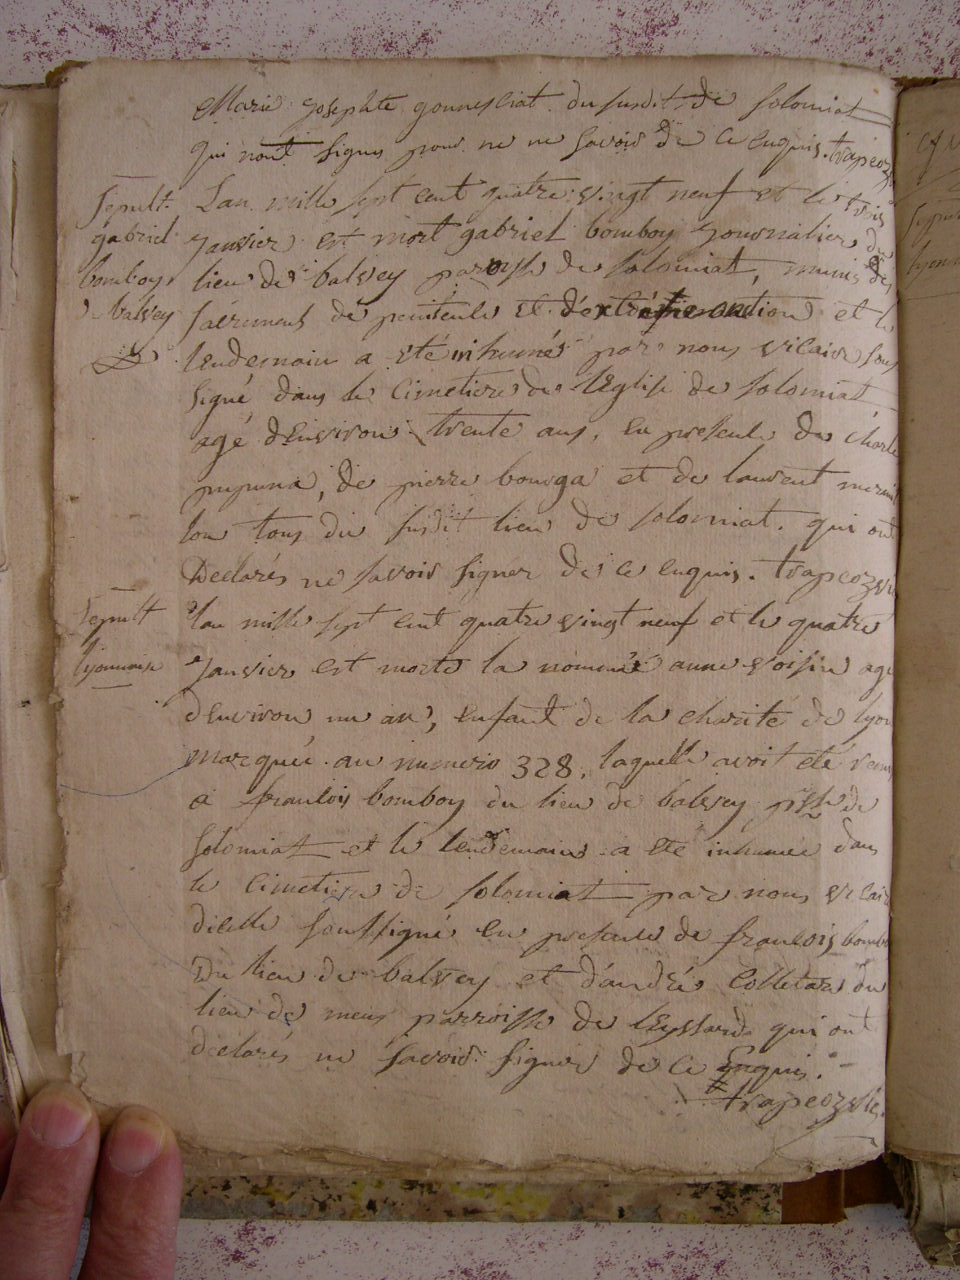 Marie Josephte gonnessiat du susdit de solomiat
qui nont signes pour ne ne savoir de ce enquis. trapeoz
Sepult. Lan mille sept cent quatre vingt neuf et le trois
gabriel Janvier est mort gabriel bomboy journalier du
bomboy lieu de balvey paroisse de solomiat, munis des
balvey sacrements de penitence et dextreme onction et le
lendemain a ete inhumé par nous vicaire sous
signé dans le cimetiere de l'Eglise de solomiat
agé d'Environ trente ans, en presence de charle
de pierre et de laurent
lon tous du susdit lieu de solomiat. qui ont
Declarés ne savoir signer de ce enquis. trapeozvie
Sepult lan mille sept cent quatre vingt neuf et le quatre
lyonnaise Janvier est morte la nommée anne voisin age
d'Environ un an, enfant de la charité de lyon
marquée au numero 328, laquelle avoit eté
a francois bomboy du lieu de balvey psse de
solomiat et le lendemain a ete inhumée dans
le cimetiere de solomiat par nous vicair
dicelle soussigné en presence de francois bombo
Du lieu de balvey et d'andré colletaz du
lieu de mens parroisse de leyssard qui ont
declarés ne savoir signer de ce Enquis.
trapeozvic.